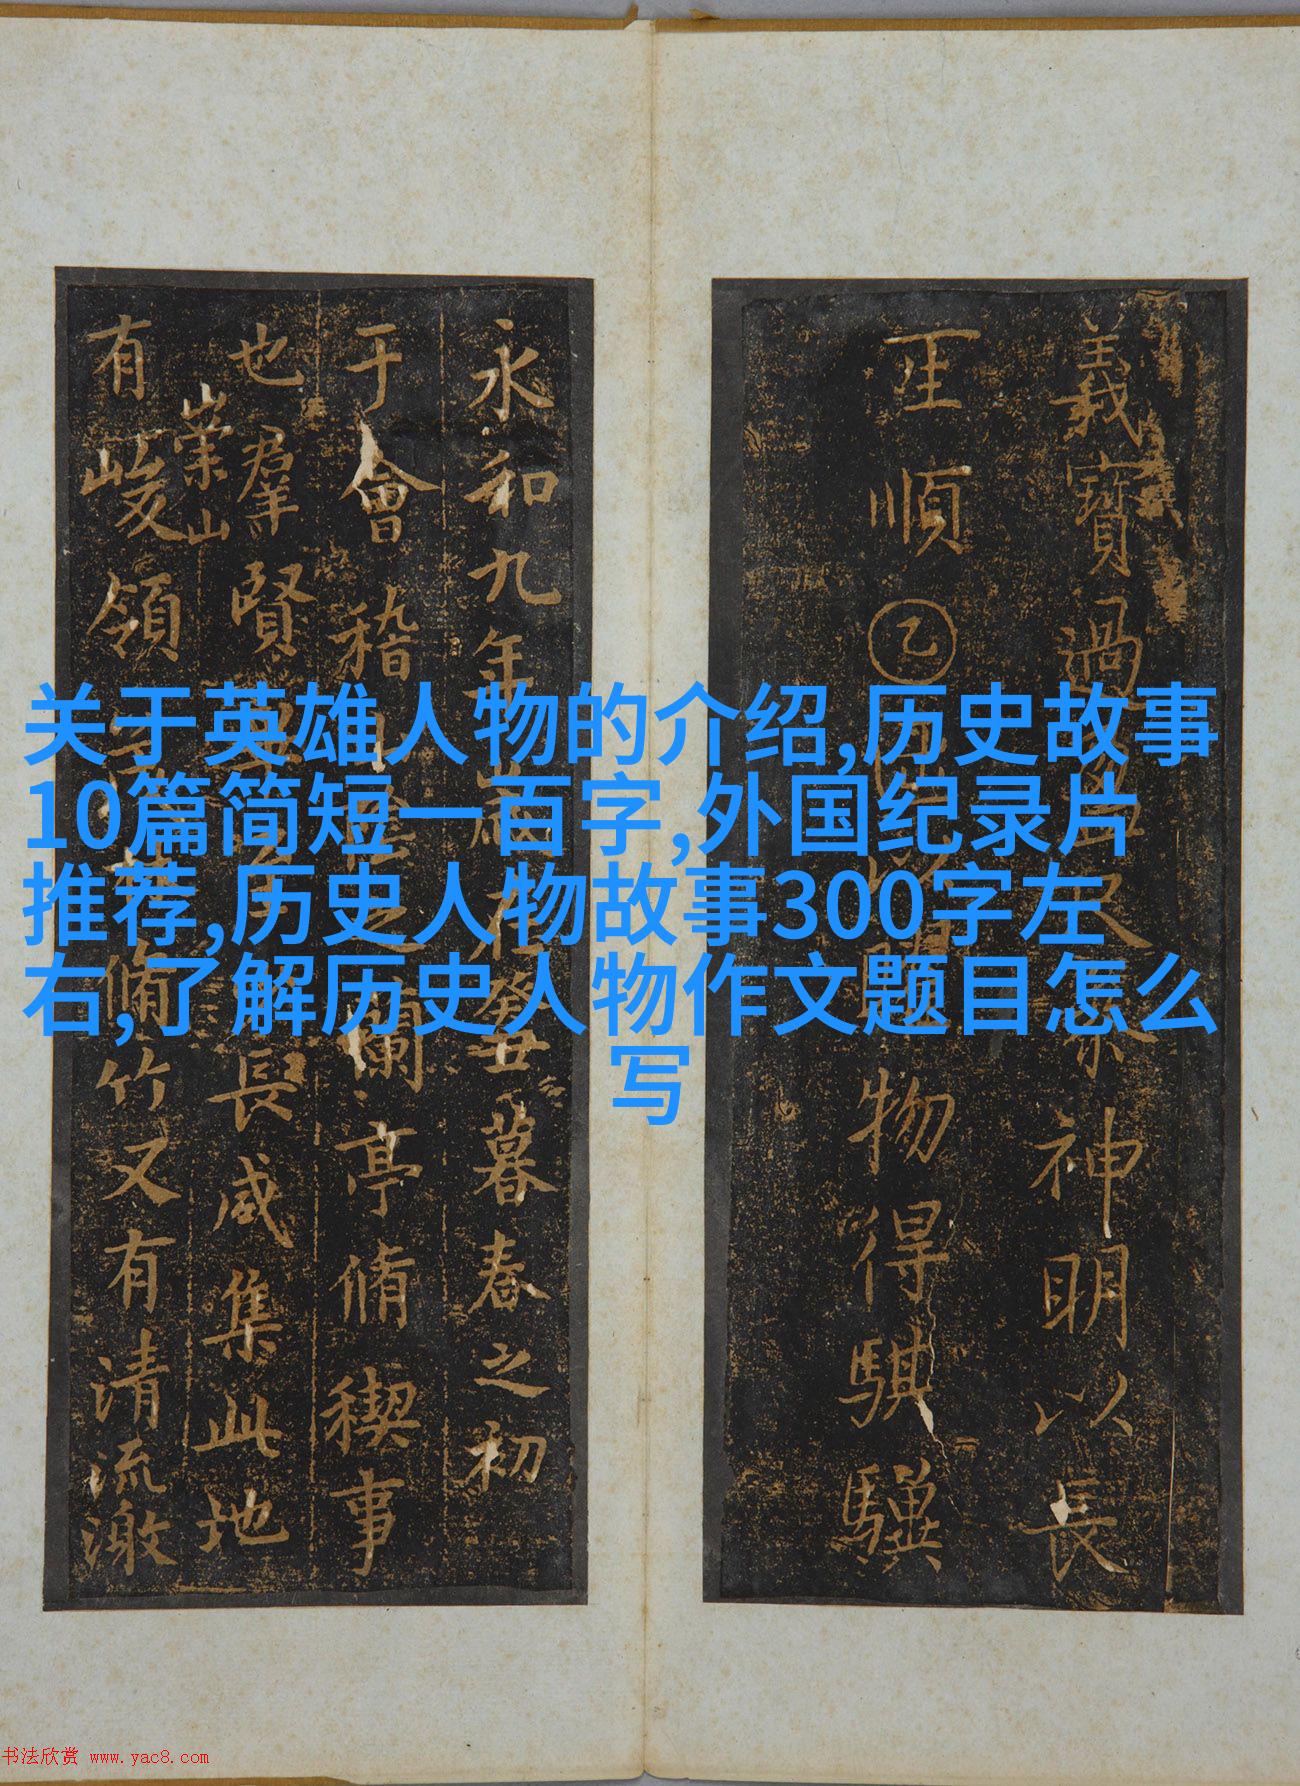 关于英雄人物的介绍,历史故事
10篇简短一百字,外国纪录片
推荐,历史人物故事300字左
右,了解历史人物作文题目怎么
写
義寶過
神明以長
王順乙
物得騏驥
永和九年
癸丑暮春之初
于會稽
蘭亭脩禊事
也羣賢
長咸集此地
崇山
有峻領
脩竹又有清流激
书法欣赏 www.yac8.com